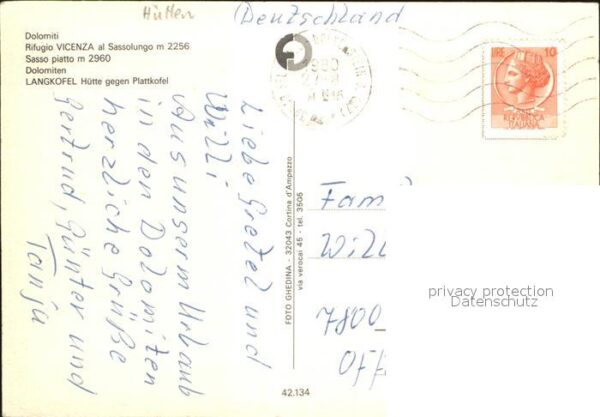 Hütten
(Deutschland
Dolomiti
Rifugio VICENZA al Sassolungo m 2256
Sasso piatto m 2960
Dolomiten
LANGKOFEL Hütte gegen Plattkofel
LIRE 10
REPVBBLICA
ITALIANA
Liebe Gretel und
Willi
Aus unserm Urlaub
in den Dolomiten
herzliche Grüße
Gertrud, Günter und
Tanja
FOTO GHEDINA - 32043 Cortina d'Ampezzo
via verocai 45 - tel. 3505
Fam
Will
7800
OFF
privacy protection
Datenschutz
42.134